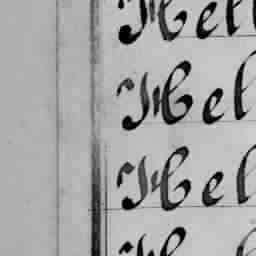 Hell
Hel
Hel